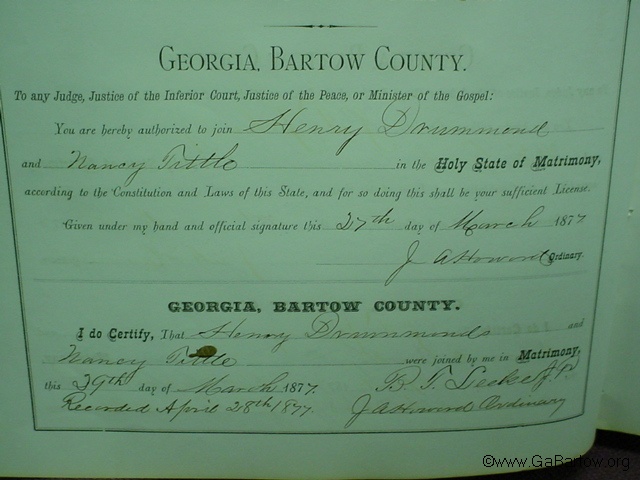 GEORGIA, BARTOW COUNTY.
To any Judge, Justice of the Inferior Court, Justice of the Peace, or Minister of the Gospel:
You are hereby authorized to join Henry Drummond
and Nancy Tittle in the Holy State of Matrimony,
according to the Constitution and Laws of this State, and for so doing this shall be your sufficient License.
Given under my hand and official signature this 27th day of March 1877
J A Howard Ordinary.
GEORGIA, BARTOW COUNTY.
I do Certify, That Henry Drummonds and
Nancy Tittle were joined by me in Matrimony,
this 29th day of March 1877. B. T. J.P.
Recorded April 28th 1877. J A Howard Ordinary
©www.GaBartow.org